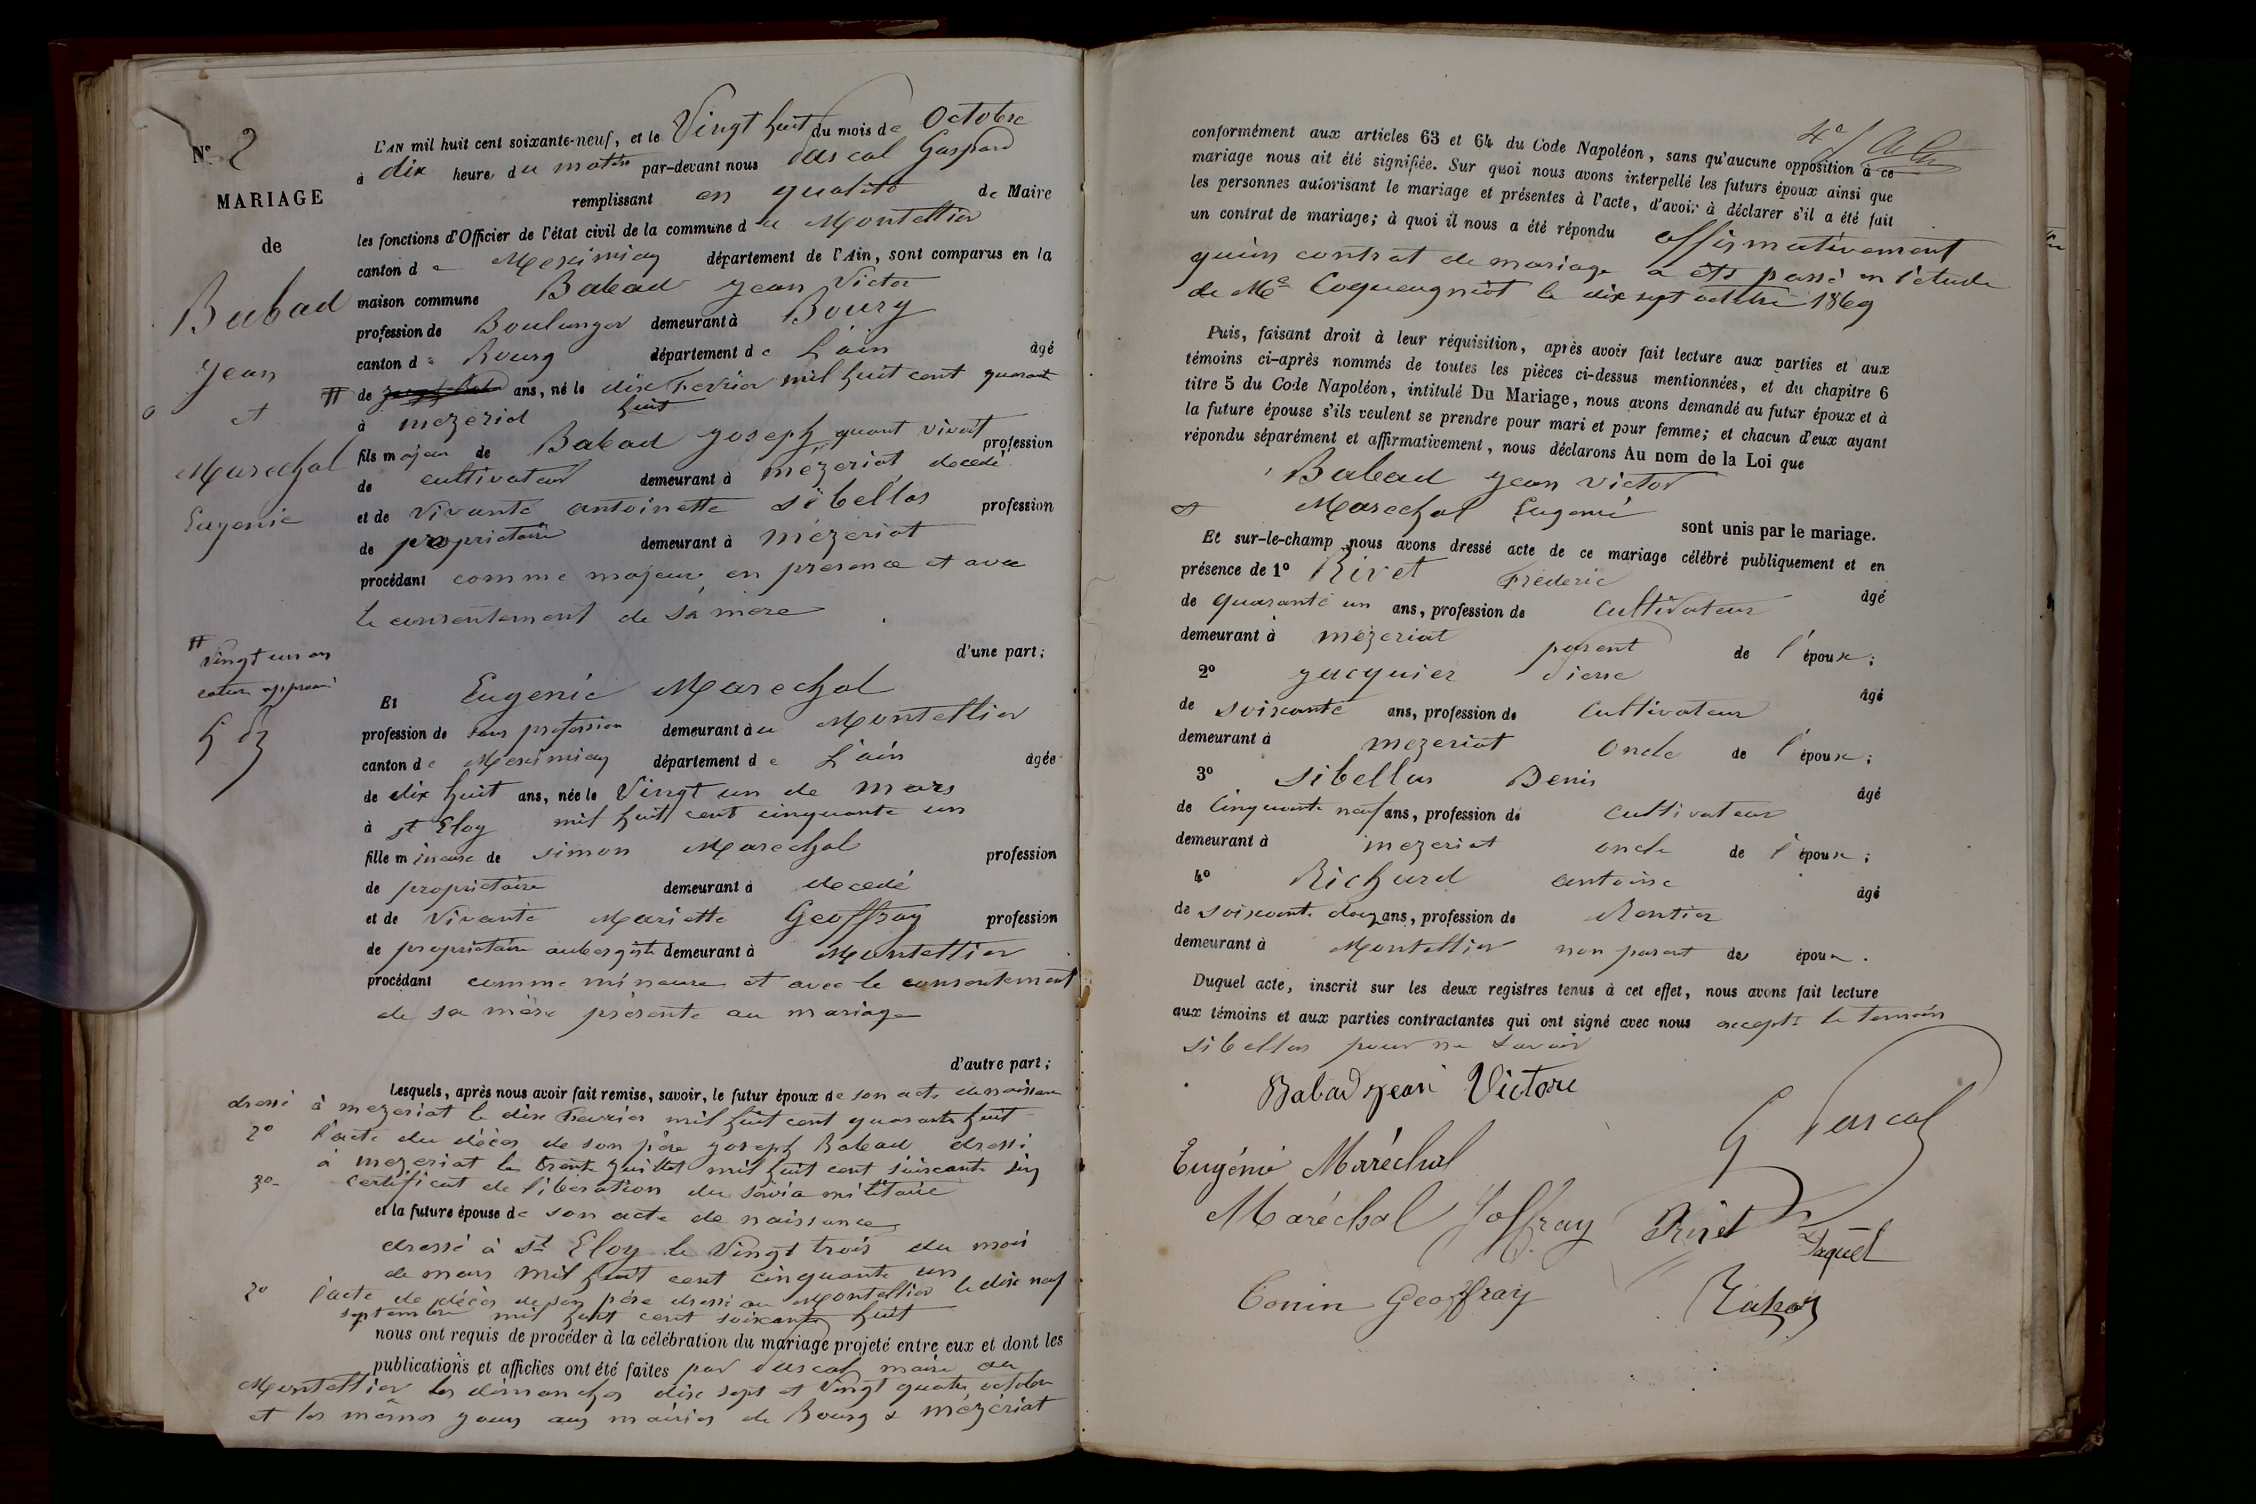 N° 2
MARIAGE
de
Babad
Jean
et
Marechal
Eugenie
L'AN mil huit cent soixante-neuf, et le Vingt huit du mois de Octobre
à dix heures du matin par-devant nous Pascal Gaspard
remplissant en qualité de Maire
les fonctions d'Officier de l'état civil de la commune de Montellier
canton de Meximieux département de l'Ain, sont comparus en la
maison commune Babad Jean Victor
profession de Boulanger demeurant à Bourg
canton de Bourg département de L'ain âgé
# de ans, né le dix Fevrier mil huit cent quarante
à mezeriat huit
fils majeur de Babad Joseph quant vivait profession
de cultivateur demeurant à mézeriat decedé
et de vivante antoinette Sibellas profession
de propriétaire demeurant à mézeriat
procédant comme majeur en présence et avec
le consentement de sa mère
d'une part;
# vingt un an
rature approuvé
G P
Et Eugenie Marechal
profession de sans profession demeurant au Montellier
canton de Meximieux département de L'ain âgée
de dix huit ans, née le Vingt un de mars
à St Eloy mil huit cent cinquante un
fille mineure de Simon Marechal profession
de propriétaire demeurant à decedé
et de Vivante Mariette Geoffray profession
de propriétaire aubergiste demeurant à Montellier
procédant comme mineure et avec le consentement
de sa mère présente au mariage
d'autre part;
Lesquels, après nous avoir fait remise, savoir, le futur époux de son acte de naissance
dressé à mezeriat le dix Fevrier mil huit cent quarante huit
2° l'acte du décès de son père Joseph Babad dressé
à mezeriat le trente Juillet mil huit cent soixante six
3° certificat de libération du service militaire
et la future épouse de son acte de naissance
dressé à St Eloy le Vingt trois du mois
de mars mil huit cent cinquante un
2° l'acte de décès de son père dressé au Montellier le dix neuf
septembre mil huit cent soixante huit
nous ont requis de procéder à la célébration du mariage projeté entre eux et dont les
publications et affiches ont été faites par Pascal maire au
Montellier les dimanches dix sept et Vingt quatre octobre
et les mêmes jours aux mairies de Bourg & mézériat
conformément aux articles 63 et 64 du Code Napoléon, sans qu'aucune opposition à ce
mariage nous ait été signifiée. Sur quoi nous avons interpellé les futurs époux ainsi que
les personnes autorisant le mariage et présentes à l'acte, d'avoir à déclarer s'il a été fait
un contrat de mariage; à quoi il nous a été répondu affirmativement
qu'un contrat de mariage a été passé en l'étude
de Me Coqueugniot le dix sept octobre 1869
Puis, faisant droit à leur réquisition, après avoir fait lecture aux parties et aux
témoins ci-après nommés de toutes les pièces ci-dessus mentionnées, et du chapitre 6
titre 5 du Code Napoléon, intitulé Du Mariage, nous avons demandé au futur époux et à
la future épouse s'ils veulent se prendre pour mari et pour femme; et chacun d'eux ayant
répondu séparément et affirmativement, nous déclarons Au nom de la Loi que
Babad Jean Victor
et Marechal Eugenie sont unis par le mariage.
Et sur-le-champ nous avons dressé acte de ce mariage célébré publiquement et en
présence de 1° Rivet Fréderic âgé
de quarante un ans, profession de cultivateur
demeurant à mézeriat parent de l'époux;
2° Jacquier Pierre âgé
de soixante ans, profession de cultivateur
demeurant à mezeriat oncle de l'époux;
3° Sibellas Denis âgé
de Cinquante neuf ans, profession de cultivateur
demeurant à mezeriat oncle de l'époux;
4° Richard antoine âgé
de soixante douze ans, profession de Rentier
demeurant à Montellier non parent des époux.
Duquel acte, inscrit sur les deux registres tenus à cet effet, nous avons fait lecture
aux témoins et aux parties contractantes qui ont signé avec nous excepté le temoin
sibellas pour ne savoir
Babad Jean Victore
G Pascal
Eugénie Maréchal
Maréchal Joffray Rivet Jaquet
Conin Geoffray